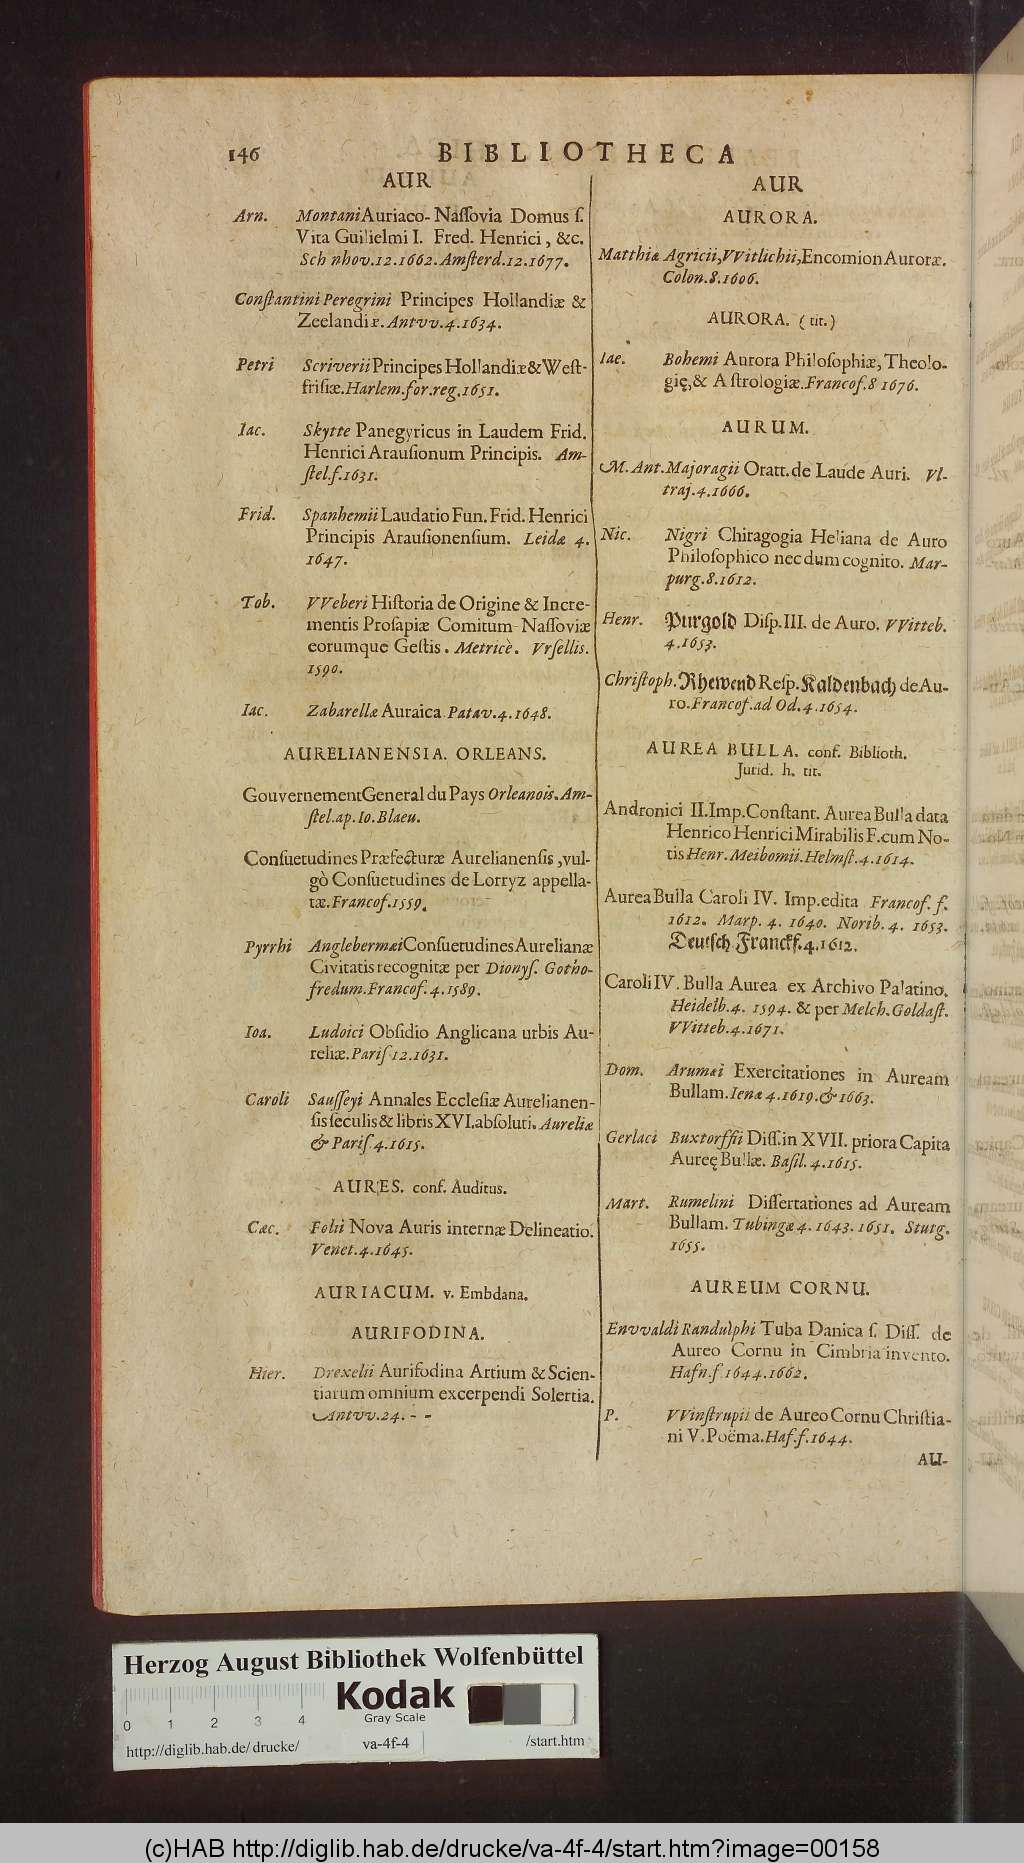 146 BIBLIOTHECA
AUR
Arn. Montani Auriaco-Naſſovia Domus ſ.
Vita Guilielmi I. Fred. Henrici, &c.
Sch nhov.12.1662.Amſterd.12.1677.
Conſtantini Peregrini Principes Hollandiæ &
Zeelandiæ. Antvv.4.1634.
Petri Scriverii Principes Hollandiæ & Weſt-
friſiæ. Harlem.for.reg.1651.
Iac. Skytte Panegyricus in Laudem Frid.
Henrici Arauſionum Principis. Am-
ſtel.f.1631.
Frid. Spanhemii Laudatio Fun. Frid. Henrici
Principis Arauſionenſium. Leidæ 4.
1647.
Tob. VVeberi Hiſtoria de Origine & Incre-
mentis Proſapiæ Comitum Naſſoviæ
eorumque Geſtis. Metricè. Vrſellis.
1590.
Iac. Zabarellæ Auraica Patav.4.1648.
AURELIANENSIA. ORLEANS.
Gouvernement General du Pays Orleanois. Am-
ſtel.ap.Io.Blaeu.
Conſuetudines Præfecturæ Aurelianenſis, vul-
gò Conſuetudines de Lorryz appella-
tæ. Francof.1559.
Pyrrhi Anglebermæi Conſuetudines Aurelianæ
Civitatis recognitæ per Dionyſ. Gotho-
fredum. Francof.4.1589.
Ioa. Ludoici Obſidio Anglicana urbis Au-
reliæ. Pariſ 12.1631.
Caroli Sauſſeyi Annales Eccleſiæ Aurelianen-
ſis ſeculis & libris XVI. abſoluti. Aureliæ
& Pariſ 4.1615.
AURES. conf. Auditus.
Cæc. Folii Nova Auris internæ Delineatio.
Venet.4.1645.
AURIACUM. v. Embdana.
AURIFODINA.
Hier. Drexelii Aurifodina Artium & Scien-
tiarum omnium excerpendi Solertia.
Antvv.24. - -
AUR
AURORA.
Matthiæ Agricii, VVitlichii, Encomion Auroræ.
Colon.8.1606.
AURORA. (tit.)
Iac. Bohemi Aurora Philoſophiæ, Theolo-
gię, & Aſtrologiæ. Francof.8 1676.
AURUM.
M. Ant. Majoragii Oratt. de Laude Auri. Vl-
traj.4.1666.
Nic. Nigri Chiragogia Heliana de Auro
Philoſophico nec dum cognito. Mar-
purg.8.1612.
Henr. Purgold Diſp. III. de Auro. VVitteb.
4.1653.
Chriſtoph. Rhewend Reſp. Kaldenbach de Au-
ro. Francof.ad Od.4.1654.
AUREA BULLA. conf. Biblioth.
Jurid. h. tit.
Andronici II. Imp. Conſtant. Aurea Bulla data
Henrico Henrici Mirabilis F. cum No-
tis Henr. Meibomii. Helmſt.4.1614.
Aurea Bulla Caroli IV. Imp. edita Francof. f.
1612. Marp. 4. 1640. Norib. 4. 1653.
Deutſch Franckf.4.1612.
Caroli IV. Bulla Aurea ex Archivo Palatino.
Heidelb.4. 1594. & per Melch. Goldaſt.
VVitteb.4.1671.
Dom. Arumæi Exercitationes in Auream
Bullam. Ienæ 4.1619. & 1663.
Gerlaci Buxtorffii Diſſ. in XVII. priora Capita
Aureę Bullæ. Baſil.4.1615.
Mart. Rumelini Diſſertationes ad Auream
Bullam. Tubingæ 4. 1643. 1651. Stutg.
1655.
AUREUM CORNU.
Envvaldi Randulphi Tuba Danica ſ. Diſſ. de
Aureo Cornu in Cimbria invento.
Hafn.f 1644.1662.
P. VVinſtrupii de Aureo Cornu Chriſtia-
ni V. Poëma. Haf.f.1644.
AU-
Herzog August Bibliothek Wolfenbüttel
Kodak
Gray Scale
0 1 2 3 4
http://diglib.hab.de/drucke/ va-4f-4 /start.htm
(c)HAB http://diglib.hab.de/drucke/va-4f-4/start.htm?image=00158